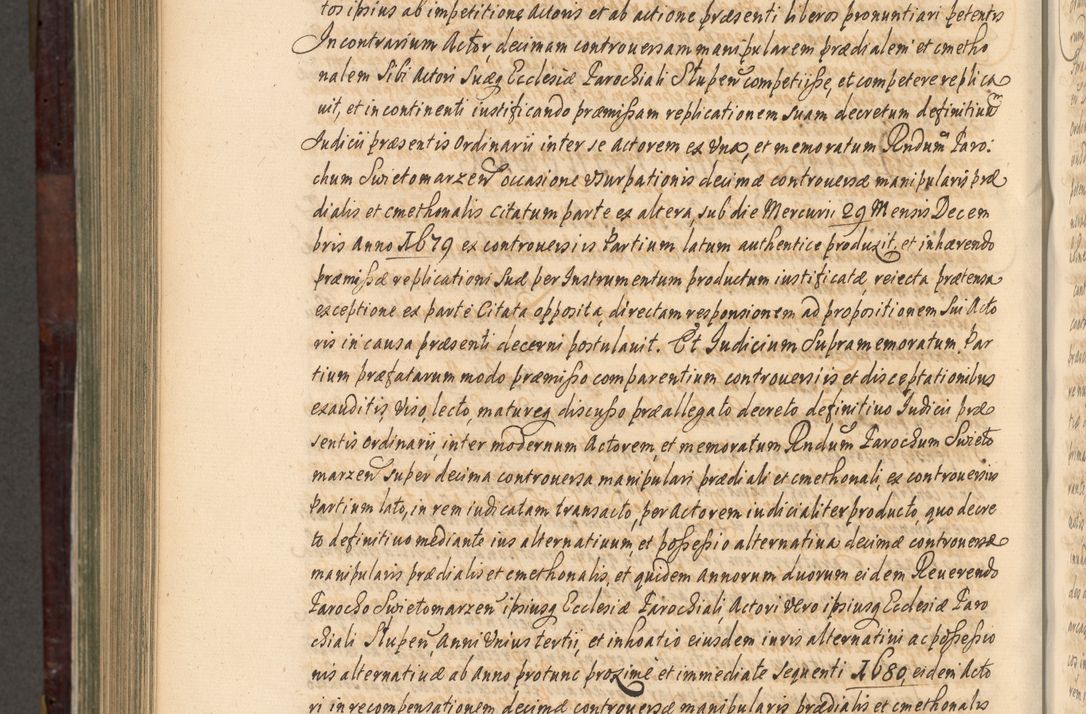 tos ipsius ab impetitione Actoris et ab actione præsenti liberos pronuntiari petentis
In contrarium Actor, decimam controversam manipularem prædialem et cmetho
nalem Sibi Actori Suæq Ecclesiæ Parochiali Stupen competiisse, et competere replica
uit, et in continenti iustificando præmissam replicationem suam decretum definitiuũ
Judicii præsentis Ordinarii inter se Actorem ex Vna, et memoratum Rndum Paro:
chum Swietomarzen occasione Vsurpationis decimæ controversæ manipularis præ
dialis et cmethonalis citatum parte ex altera, sub die Mercurii 29 Mensis Decem
bris Anno 1679 ex controuersiis Partium latum authentice produxit, et inhærendo
præmissæ replicationi Suæ per Instrumentum productum iustificatæ, reiecta prætensa
exceptione ex parte Citata opposita, directam responsionem ad propositionem Sui Acto
ris in causa præsenti decerni postulauit. Et Judicium Supramemoratum Par
tium præfatarum modo præmisso comparentium controuersiis, et disceptationibus
exauditis, Viso, lecto, matureq discusso præallegato decreto definitiuo Judicii præ
sentis Ordinarii, inter modernum Actorem, et memoratum Rndum Parochum Swieto
marzen super decima controuersa manipulari prædiali et cmethonali, ex controuersiis
Partium lato, in rem iudicatam transacto, per Actorem iudicialiter producto, quo decre
to definitiuo mediante ius alternatiuum, et possessio alternatiua decimæ controuersæ
manipularis prædialis et cmethonalis, et quidem Annorum duorum eidem Reuerendo
Parocho Swietomarzen ipsiusq Ecclesiæ Parochiali, Actori Vero ipsiusq Ecclesiæ Paro
chiali Stupen, Anni Vnius tertii, et inhoatio eiusdem iuris alternatiui ac possessio
nis alternatiuæ ab Anno protunc proxime et immediate sequenti 1680, eidem Acto
ri in recompensationem decimæ controuersæ manipularis prædialis et cmethonalis